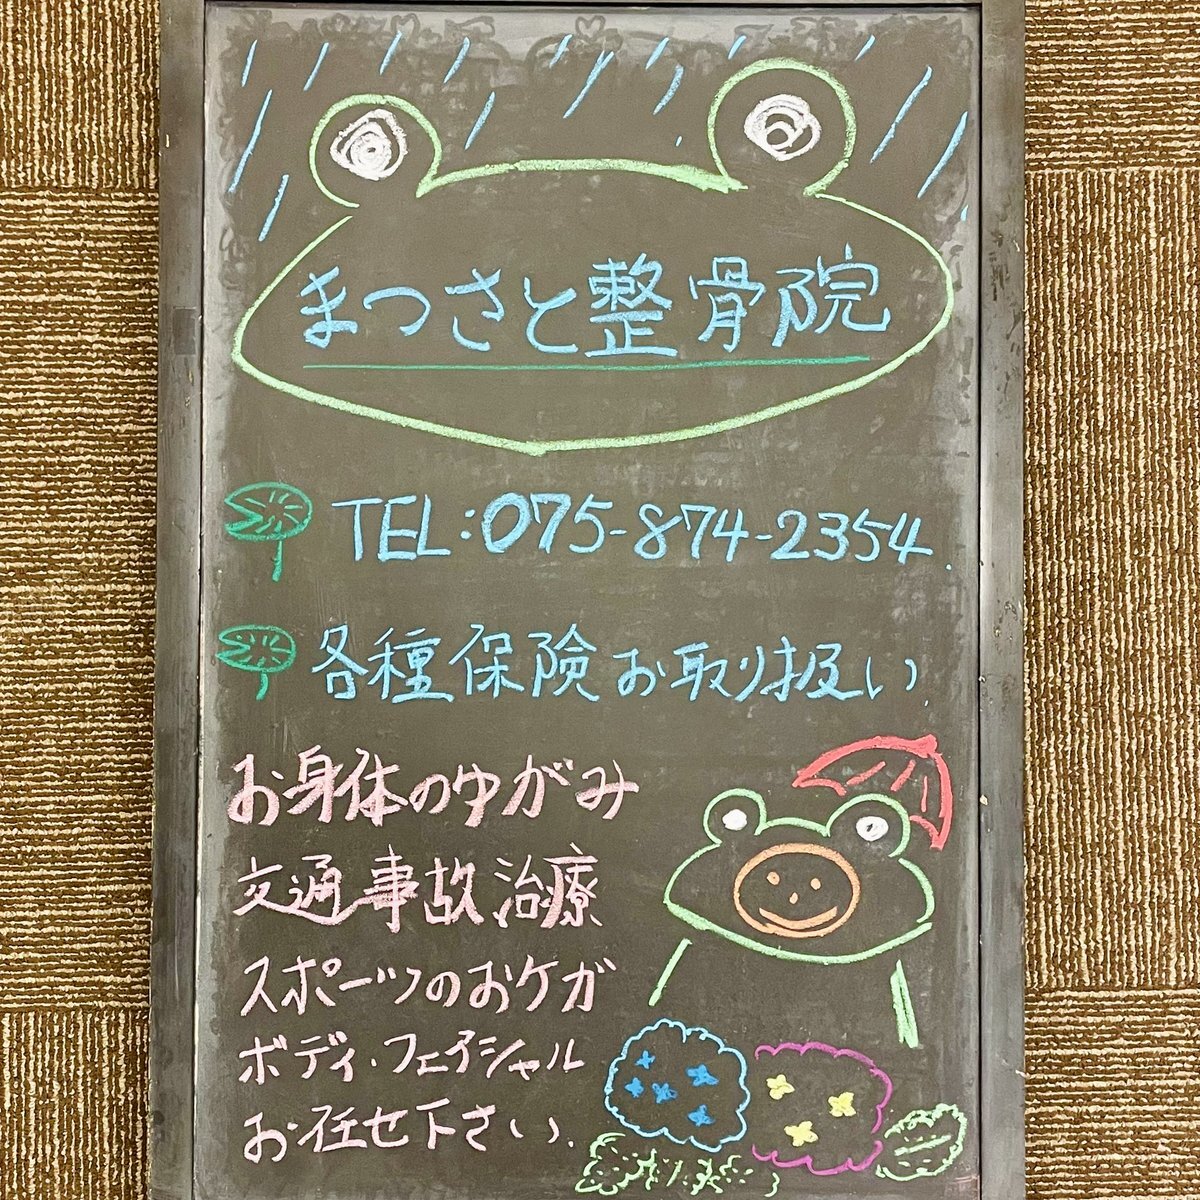 まつさと整骨院
TEL:075-874-2354
各種保険お取り扱い
お身体のゆがみ
交通事故治療
スポーツのおケガ
ボディ・フェイシャル
お任せ下さい.